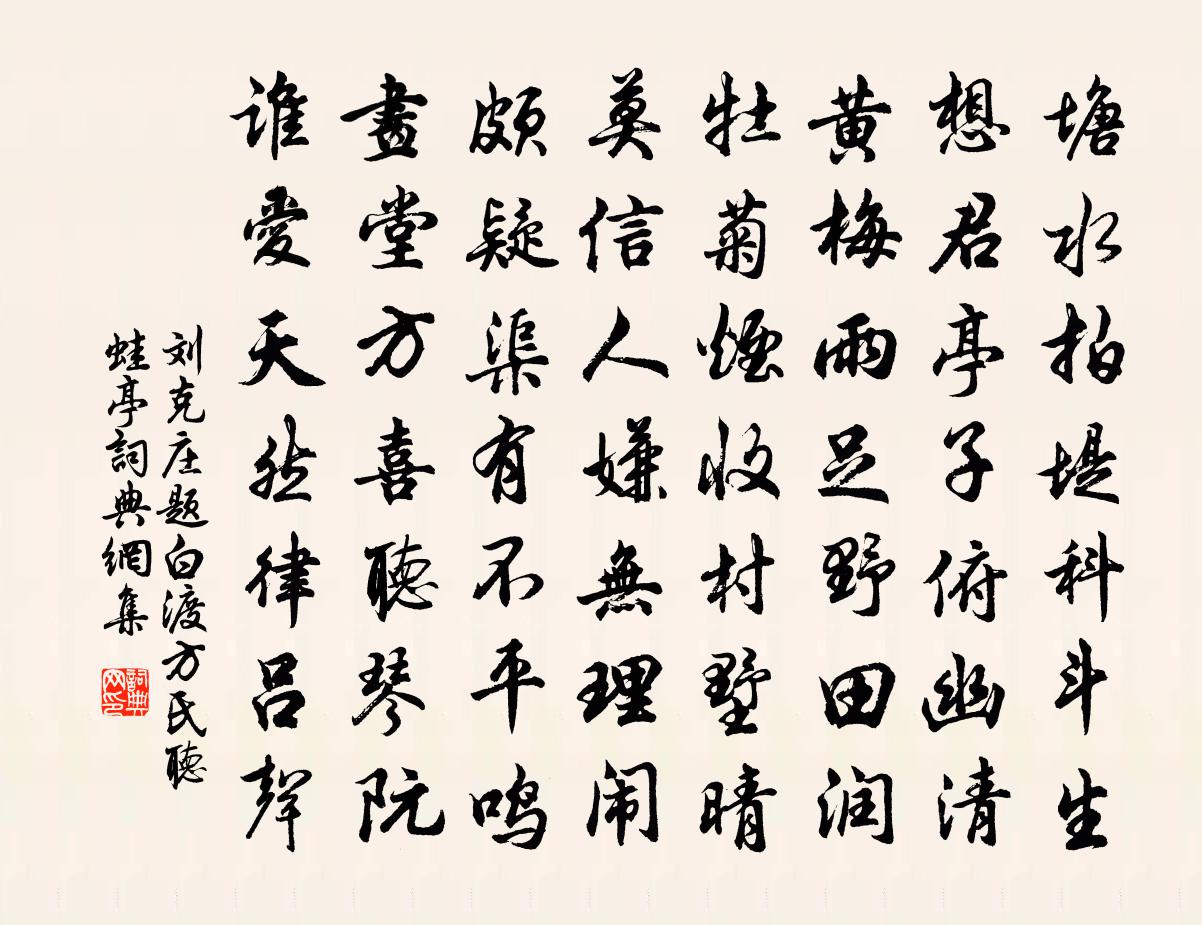 塘水拍堤科斗生
想君亭子俯幽清
黄梅雨足野田润
牡菊煙收村墅晴
莫信人嫌無理闹
頗疑渠有不平鳴
畫堂方喜聽琴阮
谁愛天然律吕聲
刘克庄题白渡方氏聽
蛙亭詞典網集
詞典
网印